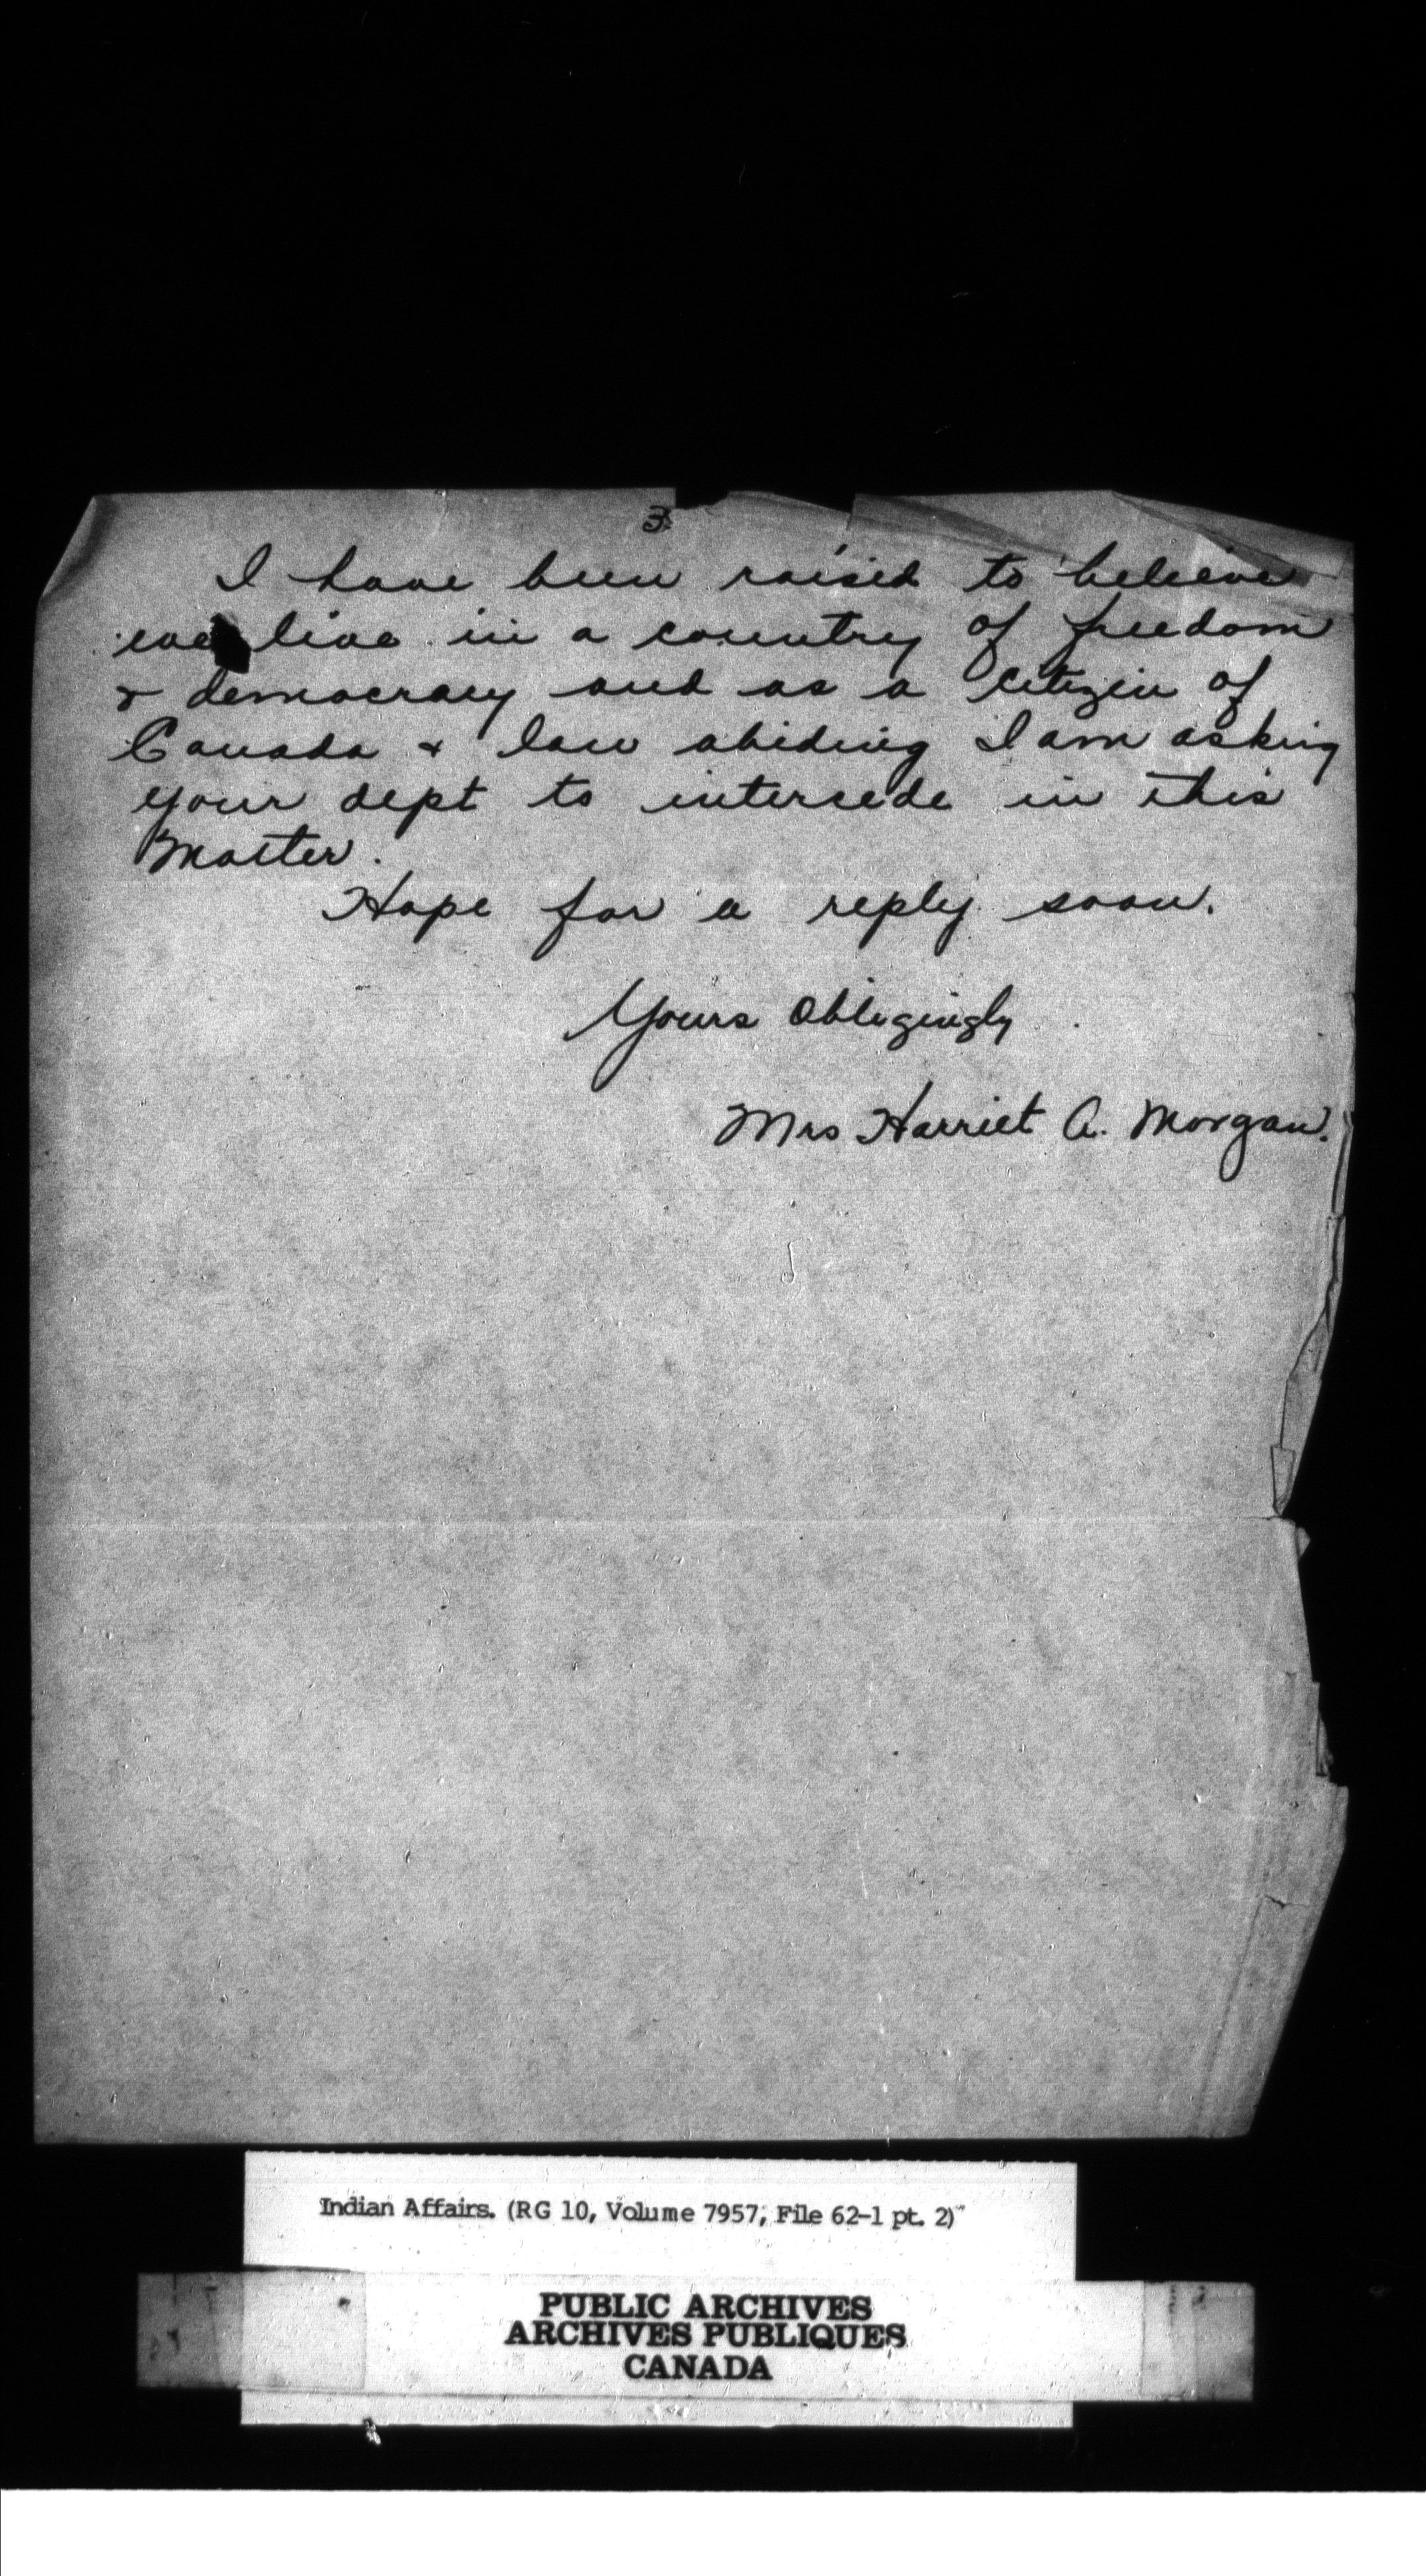 3
I have been raised to believe
we live in a country of freedom
& democracy and as a citizen of
Canada & law abiding I am asking
your dept to intersede in this
Matter.
Hope for a reply soon.
Yours Obligingly
Mrs Harriet A. Morgan.
Indian Affairs. (RG 10, Volume 7957, File 62-1 pt. 2)
PUBLIC ARCHIVES
ARCHIVES PUBLIQUES
CANADA